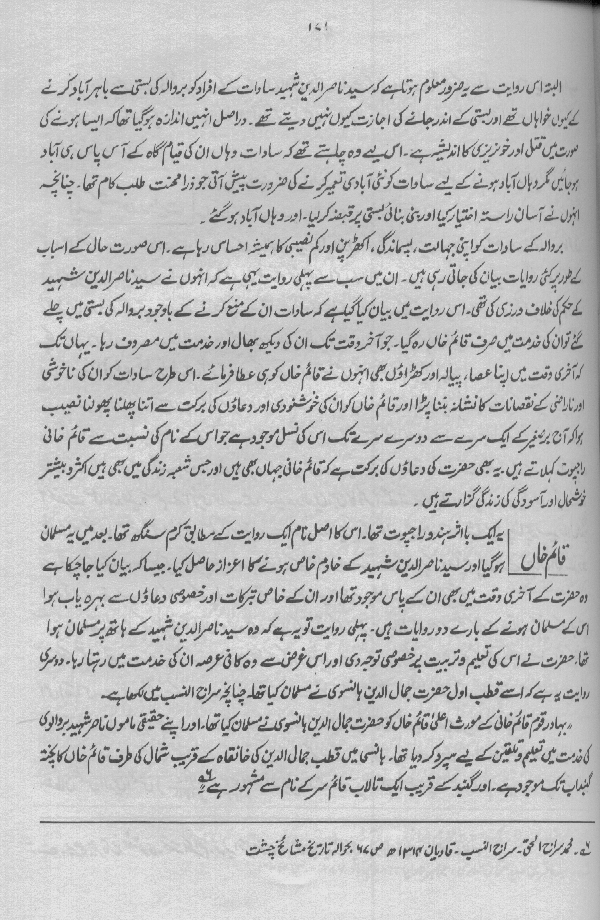 ۱۷۱
البتہ اس روایت سے یہ ضرور معلوم ہوتا ہے کہ سید ناصر الدین شہید سادات کے افراد کو بروالہ کی بستی سے باہر آباد کرنے
کے کیوں خواہاں تھے اور بستی کے اندر جانے کی اجازت کیوں نہیں دیتے تھے۔ دراصل انہیں اندازہ ہو گیا تھا کہ ایسا ہونے کی
صورت میں قتل اور خونریزی کا اندیشہ ہے۔ اس لیے وہ چاہتے تھے کہ سادات وہاں ان کی قیام گاہ کے آس پاس ہی آباد
ہو جائیں مگر وہاں آباد ہونے کے لیے سادات کو نئی آبادی تعمیر کرنے کی ضرورت پیش آتی جو ذرا محنت طلب کام تھا۔ چنانچہ
انہوں نے آسان راستہ اختیار کیا اور بنی بنائی بستی پر قبضہ کر لیا۔ اور وہاں آباد ہو گئے۔
بروالہ کے سادات کو اپنی جہالت، پسماندگی، اکھڑپن اور کم نصیبی کا ہمیشہ احساس رہا ہے۔ اس صورت حال کے اسباب
کے طور پر کئی روایات بیان کی جاتی رہی ہیں۔ ان میں سب سے پہلی روایت یہی ہے کہ انہوں نے سید ناصر الدین شہید
کے حکم کی خلاف ورزی کی تھی۔ اس روایت میں بیان کیا گیا ہے کہ سادات ان کے منع کرنے کے باوجود بروالہ کی بستی میں چلے
گئے تو ان کی خدمت میں صرف قائم خاں رہ گیا۔ جو آخر وقت تک ان کی دیکھ بھال اور خدمت میں مصروف رہا۔ یہاں تک
کہ آخری وقت میں اپنا عصاء، پیالہ اور کھڑاؤں بھی انہوں نے قائم خاں کو ہی عطا فرمائے۔ اس طرح سادات کو ان کی ناخوشی
اور ناراضی کے نقصانات کا نشانہ بننا پڑا اور قائم خاں کو ان کی خوشنودی اور دعاؤں کی برکت سے اتنا پھلنا پھولنا نصیب
ہوا کہ آج برصغیر کے ایک سرے سے دوسرے سرے تک اس کی نسل موجود ہے جو اس کے نام کی نسبت سے قائم خانی
راجپوت کہلاتے ہیں۔ یہ بھی حضرت کی دعاؤں کی برکت ہے کہ قائم خانی جہاں بھی ہیں اور جس شعبہ زندگی میں بھی ہیں اکثر و بیشتر
خوشحال اور آسودگی کی زندگی گذارتے ہیں۔
قائم خاں یہ ایک با اثر ہندو راجپوت تھا۔ اس کا اصل نام ایک روایت کے مطابق کرم سنگھ تھا۔ بعد میں یہ مسلمان
ہو گیا اور سید ناصر الدین شہید کے خادم خاص ہونے کا اعزاز حاصل کیا۔ جیسا کہ بیان کیا جا چکا ہے
وہ حضرت کے آخری وقت میں بھی ان کے پاس موجود تھا اور ان کے خاص تبرکات اور خصوصی دعاؤں سے بہرہ یاب ہوا
اس کے مسلمان ہونے کے بارے دو روایات ہیں۔ پہلی روایت تو یہ ہے کہ وہ سید ناصر الدین شہید کے ہاتھ پر مسلمان ہوا
تھا۔ حضرت نے اس کی تعلیم و تربیت پر خصوصی توجہ دی اور اس غرض سے وہ کافی عرصہ ان کی خدمت میں رہتا رہا۔ دوسری
روایت یہ ہے کہ اسے قطب اول حضرت جمال الدین ہانسوی نے مسلمان کیا تھا۔ چنانچہ سراج النسب میں لکھا ہے۔
"بہادر قوم قائم خانی کے مورث اعلیٰ قائم خاں کو حضرت جمال الدین ہانسوی نے مسلمان کیا تھا۔ اور اپنے حقیقی ماموں ناصر شہید بروالوی
کی خدمت میں تعلیم و تلقین کے لیے سپرد کر دیا تھا۔ ہانسی میں قطب جمال الدین کی خانقاہ کے قریب شمال کی طرف قائم خاں کا پختہ
گنبد اب تک موجود ہے۔ اور گنبد کے قریب ایک تالاب قائم سر کے نام سے مشہور ہے"
محمد سراج الحق۔ سراج النسب۔ قادیان ۱۳۱۴ھ ص ۶۷ بحوالہ تاریخ مشائخ چشت